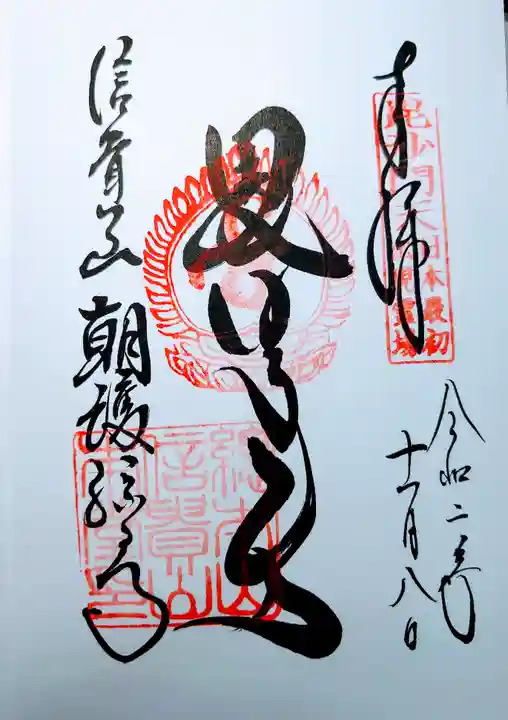 奉拝
毘沙門天日本最初
出現霊場
令和二年
十一月八日
毘沙門天
信貴山 朝護孫子寺
總本山
信貴山